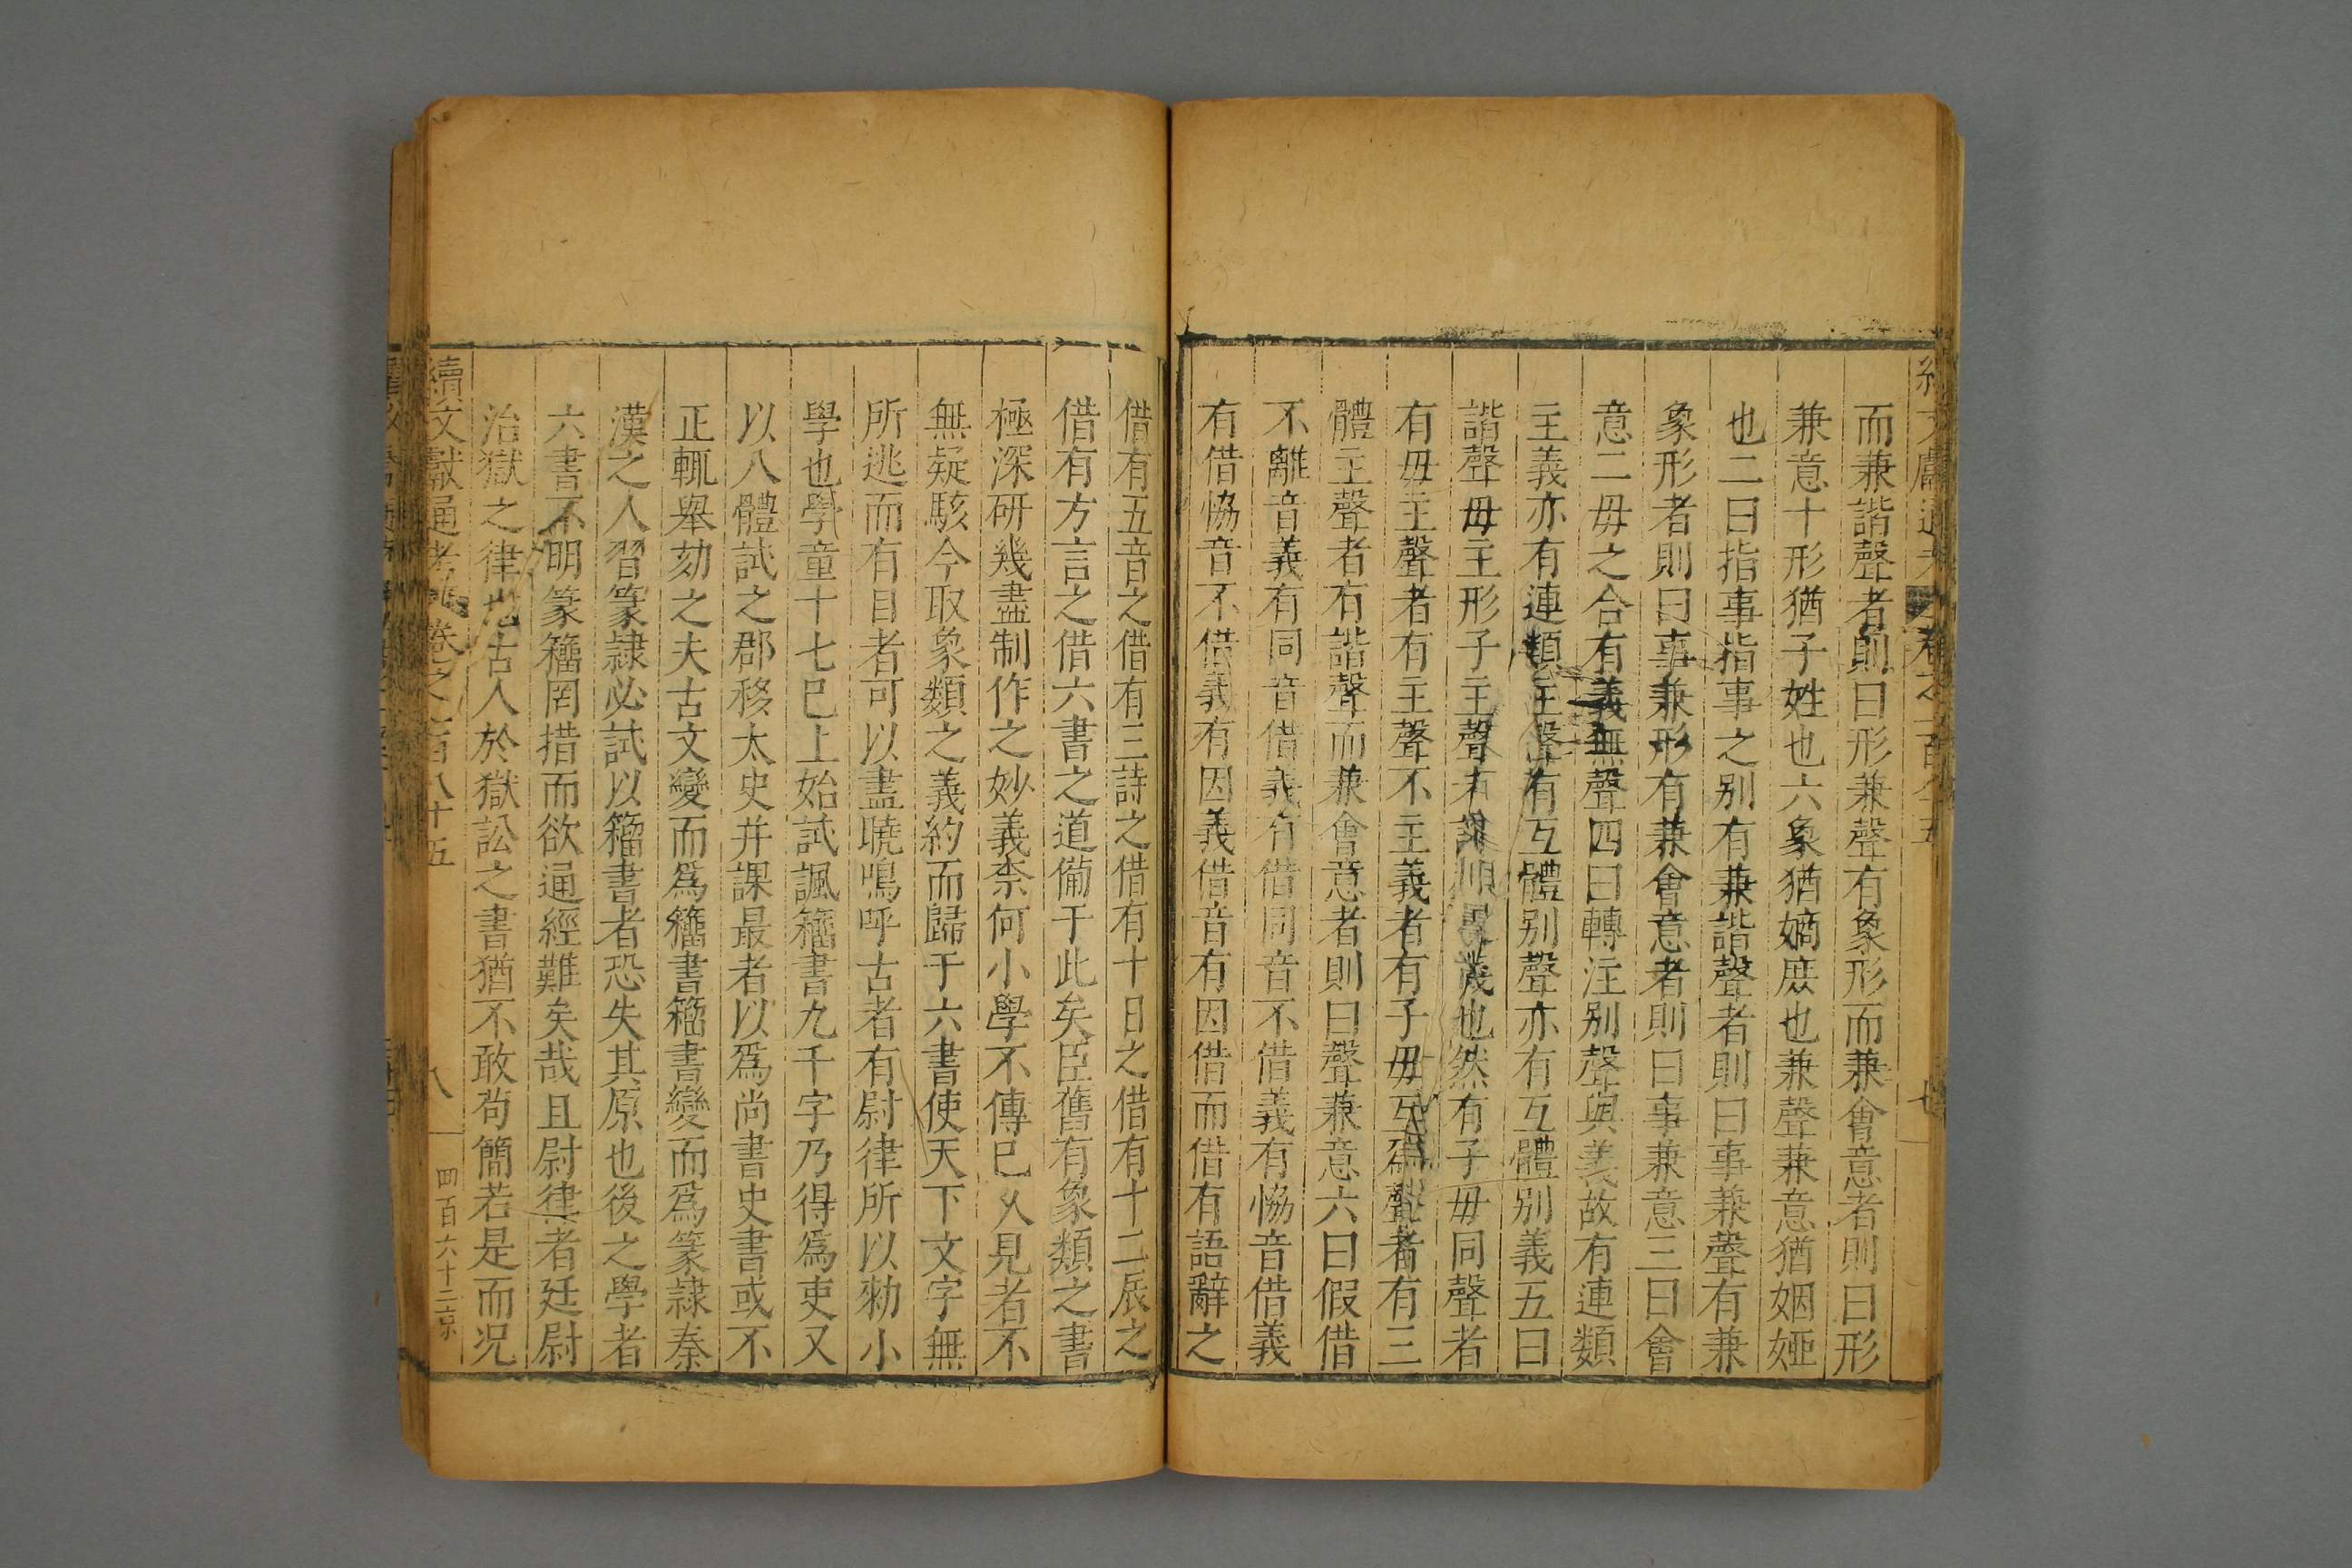 而兼諧聲者則曰形兼聲有象形而兼會意者則曰形
兼意十形猶子姓也六象猶嫡庶也兼聲兼意猶姻婭
也二曰指事指事之别有兼諧聲者則曰事兼聲有兼
象形者則曰事兼形有兼會意者則曰事兼意三曰會
意二毋之合有義無聲四曰轉注别聲與義故有連類
主義亦有連類主聲有互體别聲亦有互體别義五曰
諧聲毋主形子主聲者諧聲之義也然有子毋同聲者
有毋主聲者有主聲不主義者有子毋互爲聲者有三
體主聲者有諧聲而兼會意者則曰聲兼意六曰假借
不離音義有同音借義有借同音不借義有恊音借義
有借恊音不借義有因義借音有因借而借有語辭之
借有五音之借有三詩之借有十日之借有十二辰之
借有方言之借六書之道備于此矣臣舊有象類之書
極深研幾盡制作之妙義柰何小學不傳巳久見者不
無疑駭今取象類之義約而歸于六書使天下文字無
所逃而有目者可以盡曉嗚呼古者有尉律所以勑小
學也學童十七巳上始試諷籀書九千字乃得爲吏又
以八體試之郡移太史并課最者以爲尚書史書或不
正輒舉劾之夫古文變而爲籀書籀書變而爲篆隷秦
漢之人習篆隷必試以籀書者恐失其原也後之學者
六書不明篆籀罔措而欲通經難矣哉且尉律者廷尉
治獄之律也古人於獄訟之書猶不敢苟簡若是而况
續文獻通考 卷之一百八十五 八 四百六十二 京